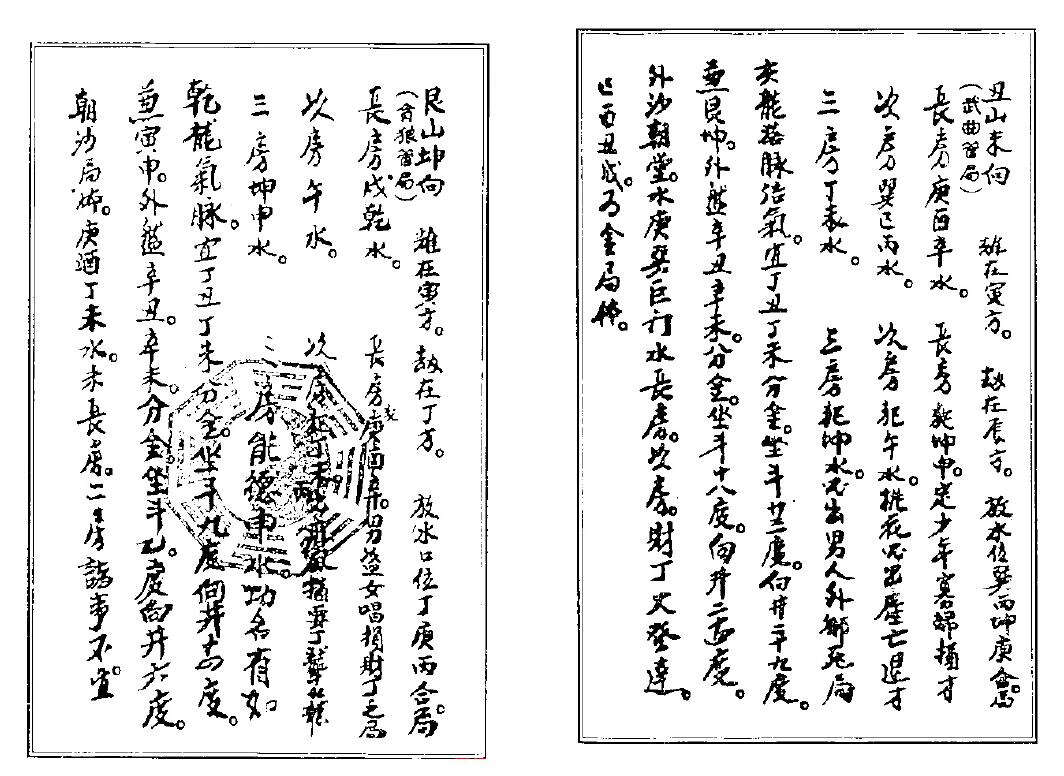 丑山未向
(武曲習局)
雄在寅方。劫在辰方。放水位巽丙坤庚合局
長房庚酉辛水。長房乾坤申。定少年寡婦損才
次房巽巳丙水。次房犯午水。桃花出塵亡退才
三房丁未水。三房犯坤水。必出男人外鄉死局
亥龍落脉結氣。宜丁丑丁未分金。坐斗廿二度。向井二十九度。
兼艮坤。外盤辛丑辛未分金。坐斗十八度。向井二十五度。
外沙朝堂。水庚巽巨门水長房。次房。財丁大發達。
巳酉丑成。为金局体。
艮山坤向
(貪狼習局)
雄在寅方。劫在丁方。放水口位丁庚丙合局
長房戌乾水。長房庚酉辛。男盗女唱損財丁之局
次房午水。次房
三房坤申水。三房能德申水功名有
乾龍氣脉。宜丁丑丁未分金。坐斗九度向井十四度。
兼寅申。外盤辛丑。辛未。分金坐斗九度向井六度。
朝沙局体。庚酒丁未水。未長房。二房諸事不宜